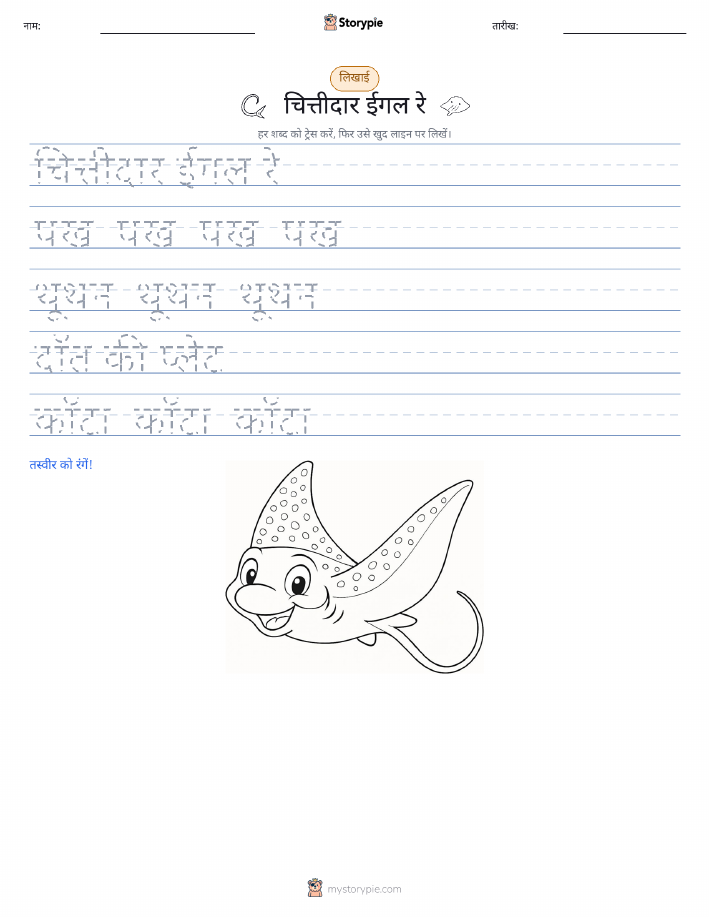 नाम:
Storypie
तारीख:
लिखाई
चित्तीदार ईगल रे
हर शब्द को ट्रेस करें, फिर उसे खुद लाइन पर लिखें।
चित्तीदार ईगल रे
पंख पंख पंख पंख
थूथन थूथन थूथन
दाँत की प्लेट
काँटा काँटा काँटा
तस्वीर को रंगें!
mystorypie.com